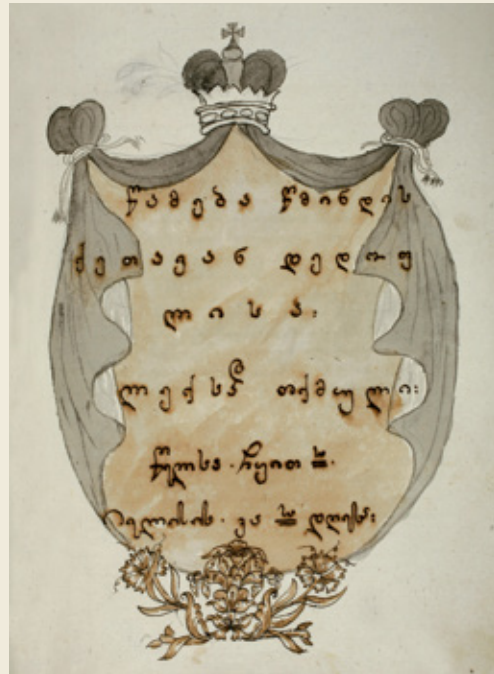 წამება წმინდის
ქეთავან დედოფ
ლისა:
ლექსად თქმული:
წელსა . ჩყით სა.
ივლისის . კა სა დღესა: